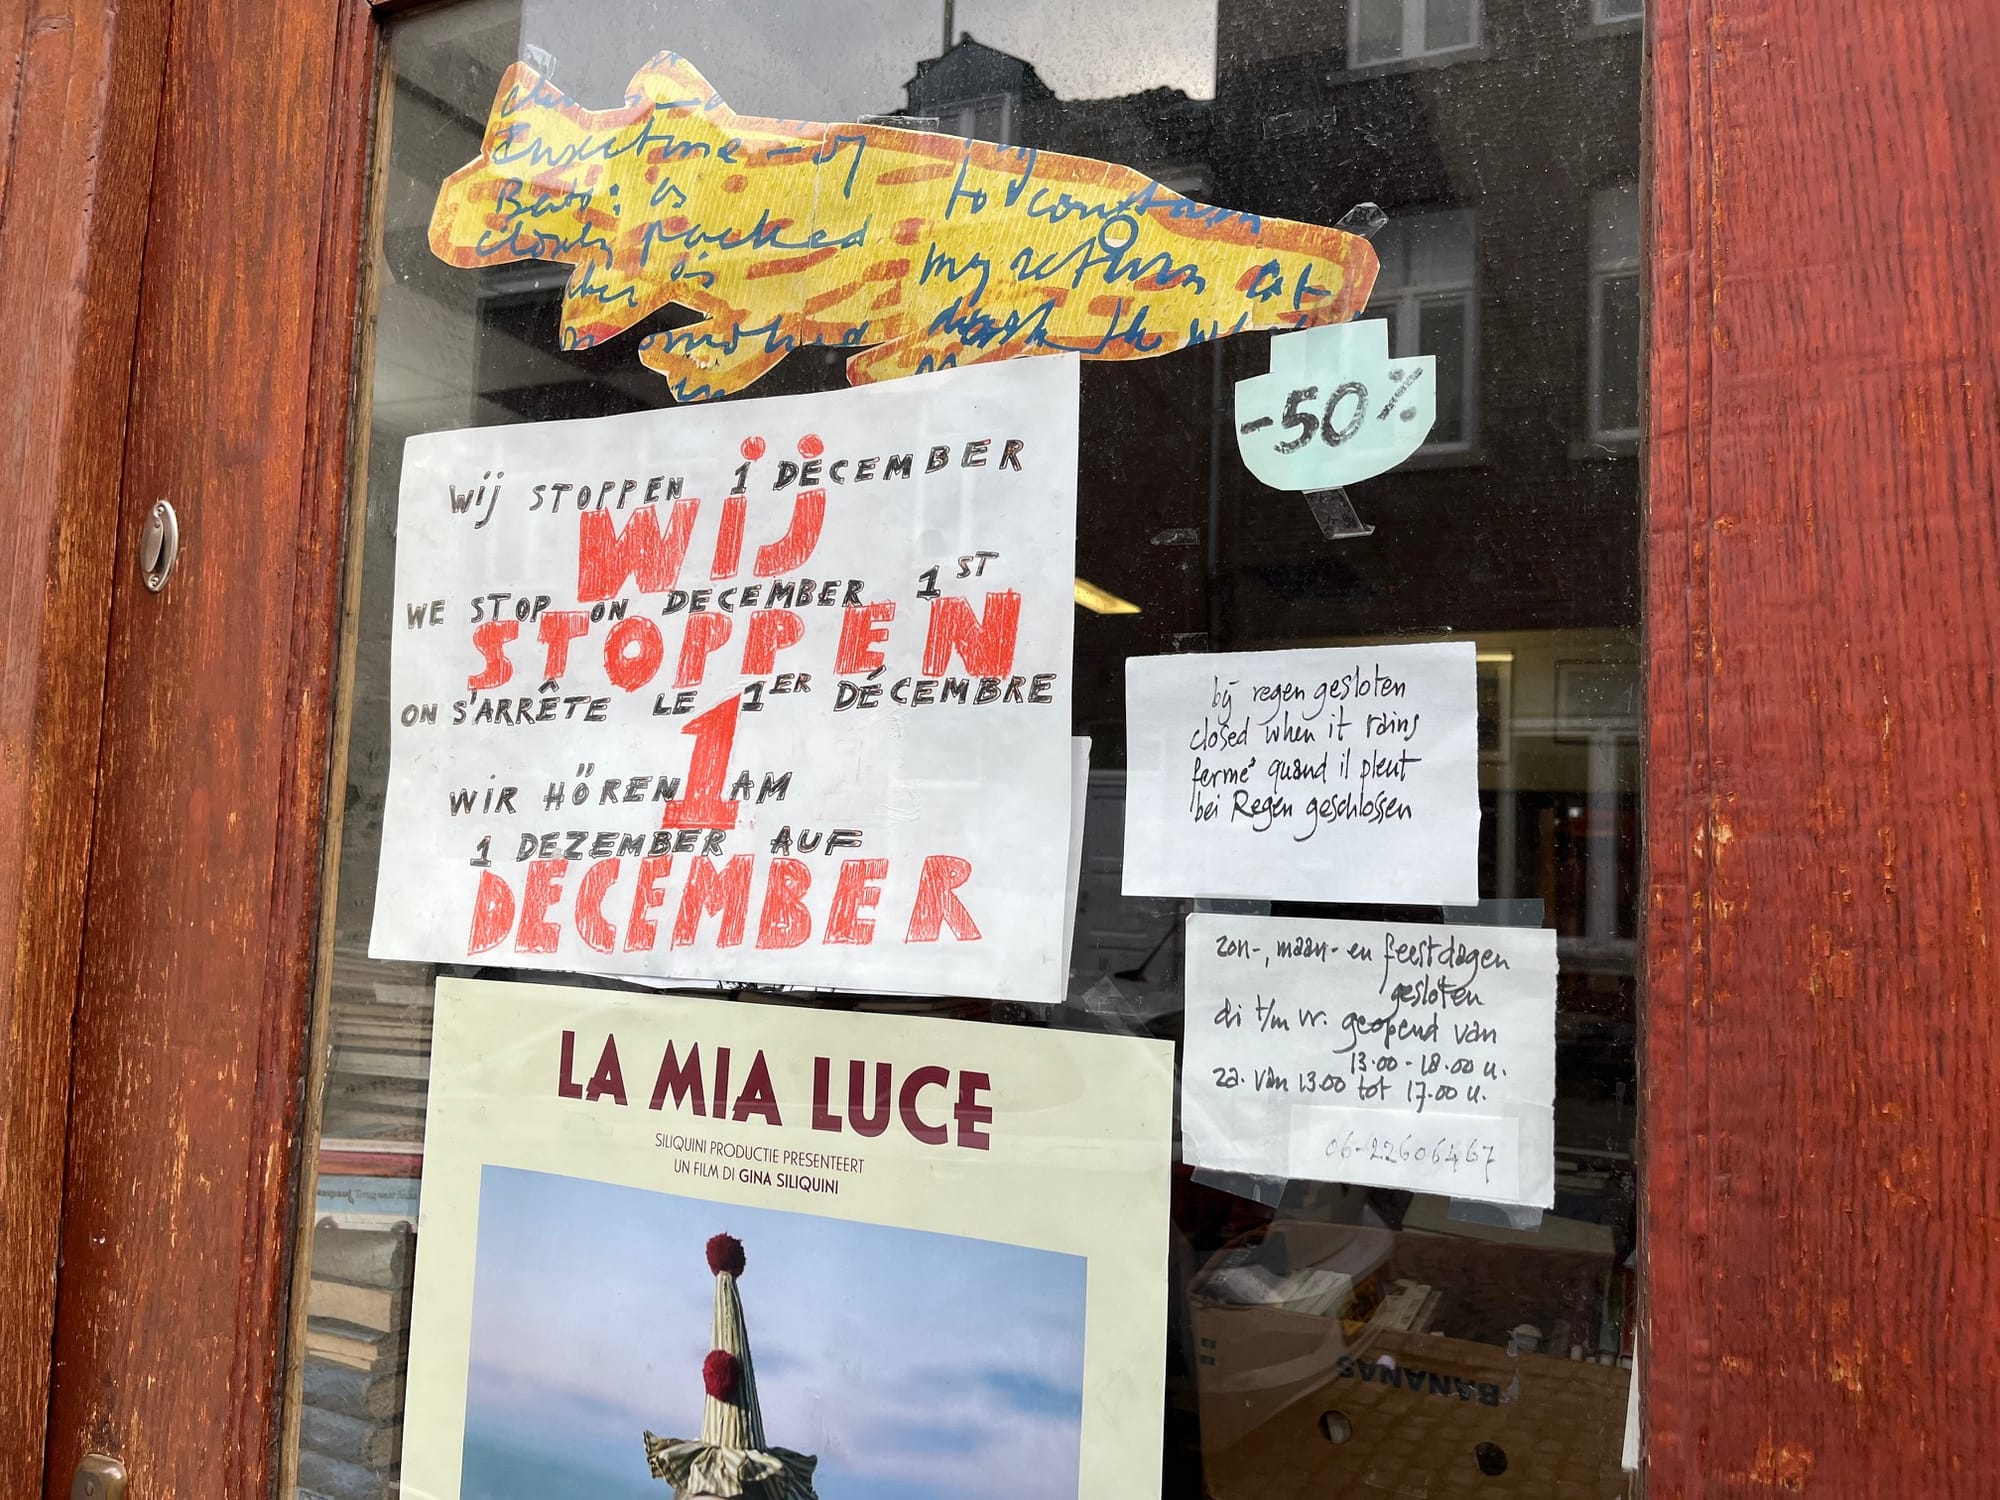 Bats: as
closely packed
to contain
my return at
-50%
WIJ STOPPEN 1 DECEMBER
WIJ
WE STOP ON DECEMBER 1ST
STOPPEN
ON S'ARRÊTE LE 1ER DÉCEMBRE
1
WIR HÖREN AM
1 DEZEMBER AUF
DECEMBER
bij regen gesloten
closed when it rains
fermé quand il pleut
bei Regen geschlossen
zon-, maan- en feestdagen
gesloten
di t/m vr. geopend van
13.00-18.00 u.
za. van 13.00 tot 17.00 u.
06-22606467
LA MIA LUCE
SILIQUINI PRODUCTIE PRESENTEERT
UN FILM DI GINA SILIQUINI
BANANAS